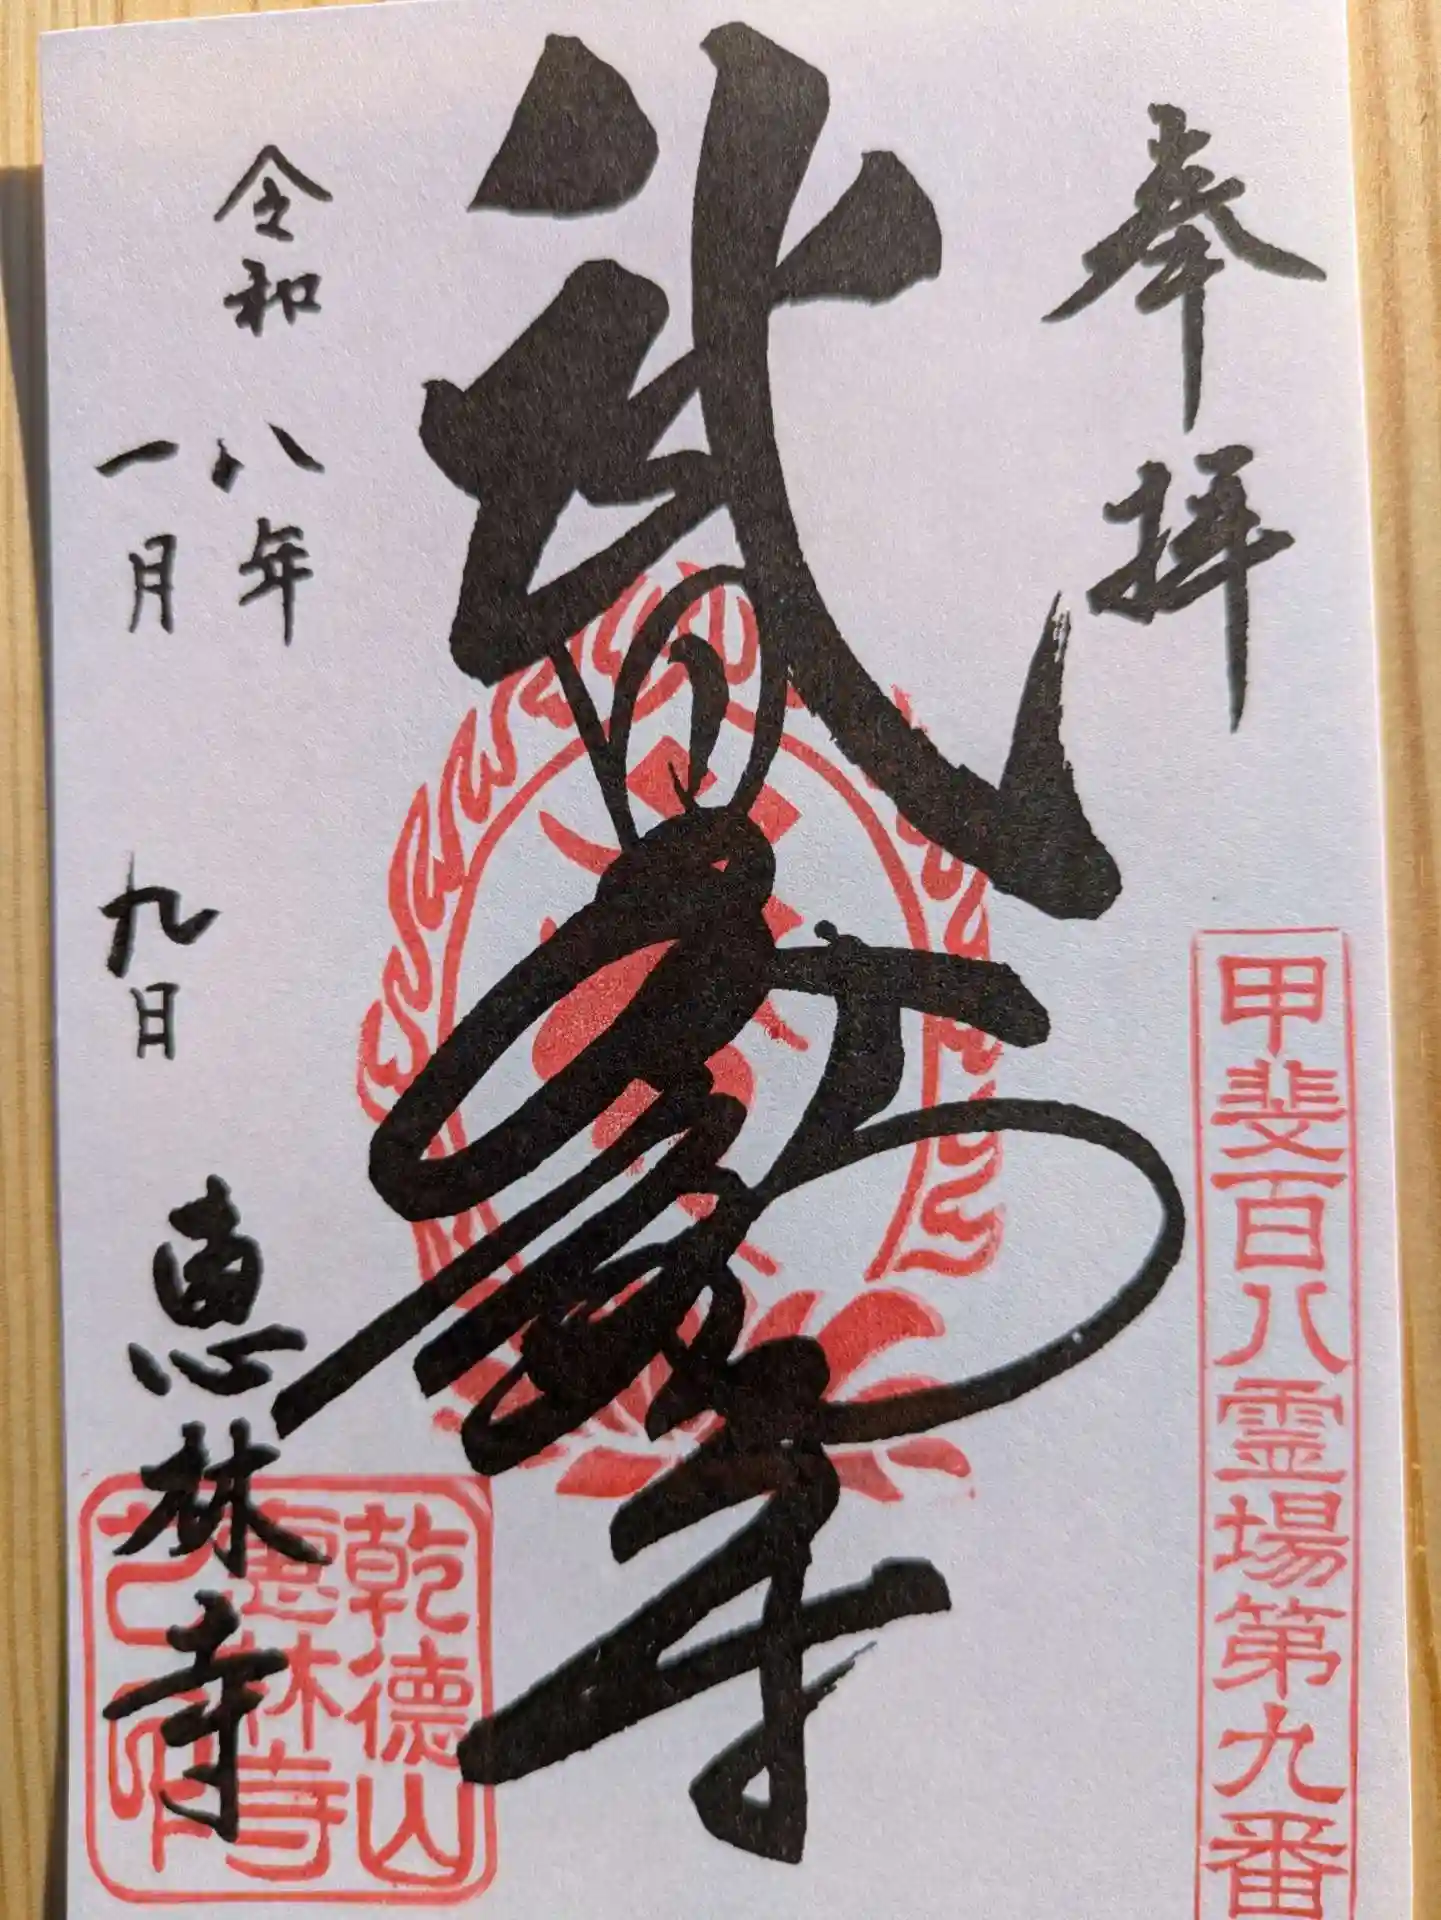 奉拝
甲斐百八霊場第九番
武田不動尊
令和八年
一月九日
恵林寺
乾徳山
恵林寺
之印